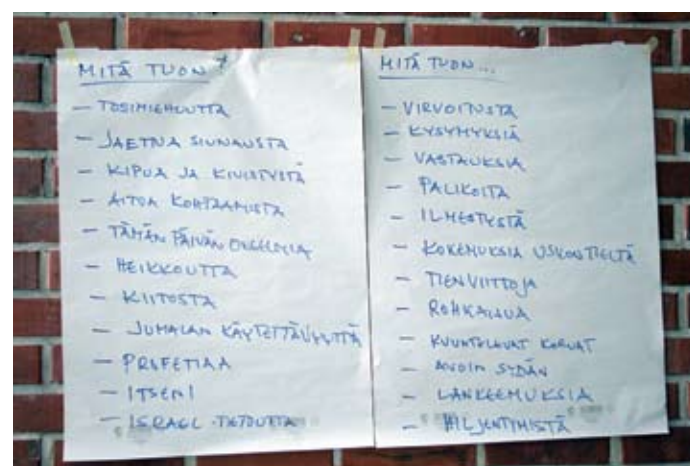 MITÄ TUON?
- TOSIMIEHUUTTA
- JAETNA SIUNAUSTA
- KIPUA JA KIVISTYSTÄ
- AITOA KOHTAAMISTA
- TÄMÄN PÄIVÄN ONGELMIA
- HEIKKOUTTA
- KIITOSTA
- JUMALAN KÄYTETTÄVYYTTÄ
- PROFETIAA
- ITSENI
- ISRAEL-TIETOUTTA
MITÄ TUON...
- VIRVOITUSTA
- KYSYMYKSIÄ
- VASTAUKSIA
- PALIKOITA
- ILMESTYSTÄ
- KOKEMUKSIA USKONTIELTÄ
- TIENVIITTOJA
- ROHKAISUA
- KUUNTELEVAT KORVAT
- AVOIN SYDÄN
- LANKEEMUKSIA
- HILJENTYMISTÄ